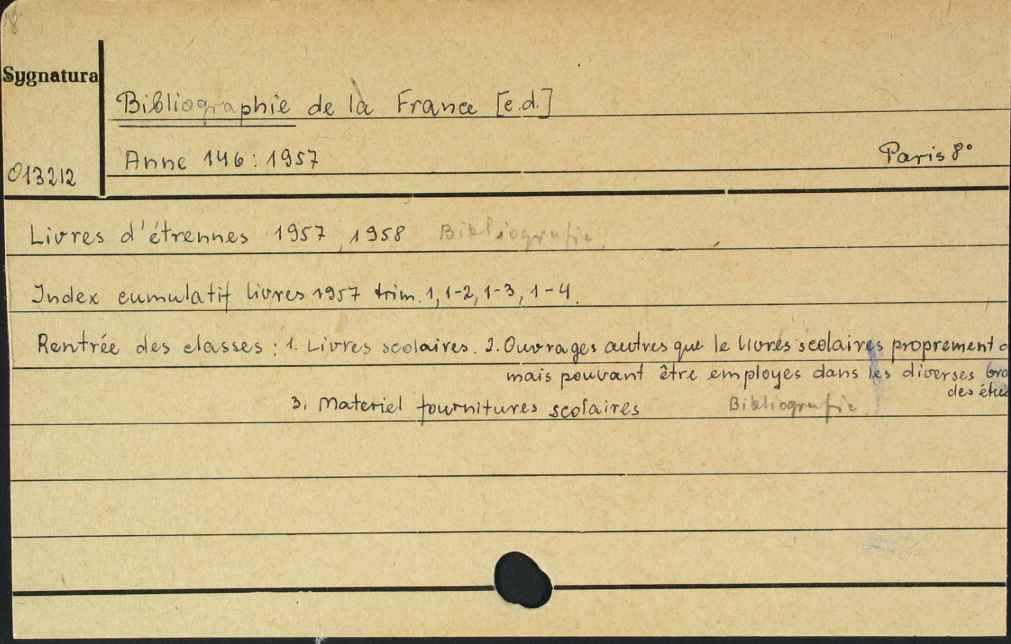 Sygnatura
Bibliographie de la France [e.d.]
Anne 146: 1957 Paris 8°
013212
Livres d'étrennes 1957, 1958 Bibliografie
Index cumulatif livres 1957 trim. 1, 1-2, 1-3, 1-4.
Rentrée des classes: 1. Livres scolaires. 2. Ouvrages autres que le livres scolaires proprement
mais pouvant être employes dans les diverses
des
3. Materiel fournitures scolaires Bibliografie